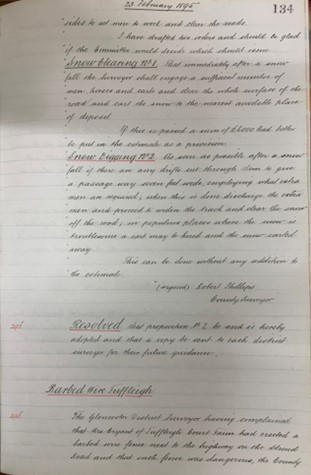 23 February 1895
134
sides to set men to work and clear the roads.
I have drafted two orders and should be glad
if the Committee would decide which should issue
Snow Clearing No 1. That immediately after a snow
fall the Surveyor shall engage a sufficient number of
men, horses and carts and clear the whole surface of the
road and cart the snow to the nearest available place
of deposit.
If this is passed a sum of £6000 had better
be put in the estimate as a provision.
Snow Digging No 2. As soon as possible after a snow
fall if there are any drifts cut through them to give
a passage way seven feet wide, employing what extra
men are required; when this is done discharge the extra
men and proceed to widen the track and clear the snow
off the road; in populous places where the snow is
troublesome a cart may be hired and the snow carted
away.
This can be done without any addition to
the estimate.
(signed) Robert Phillips
County Surveyor
Resolved that proposition No 2 be and is hereby
adopted and that a copy be sent to each district
surveyor for their future guidance.
Barbed Wire Tuffleigh
The Gloucester District Surveyor having complained
that Mrs Bryant of Tuffleigh Court Farm had erected a
barbed wire fence next to the highway on the Stroud
Road and that such fence was dangerous, the County